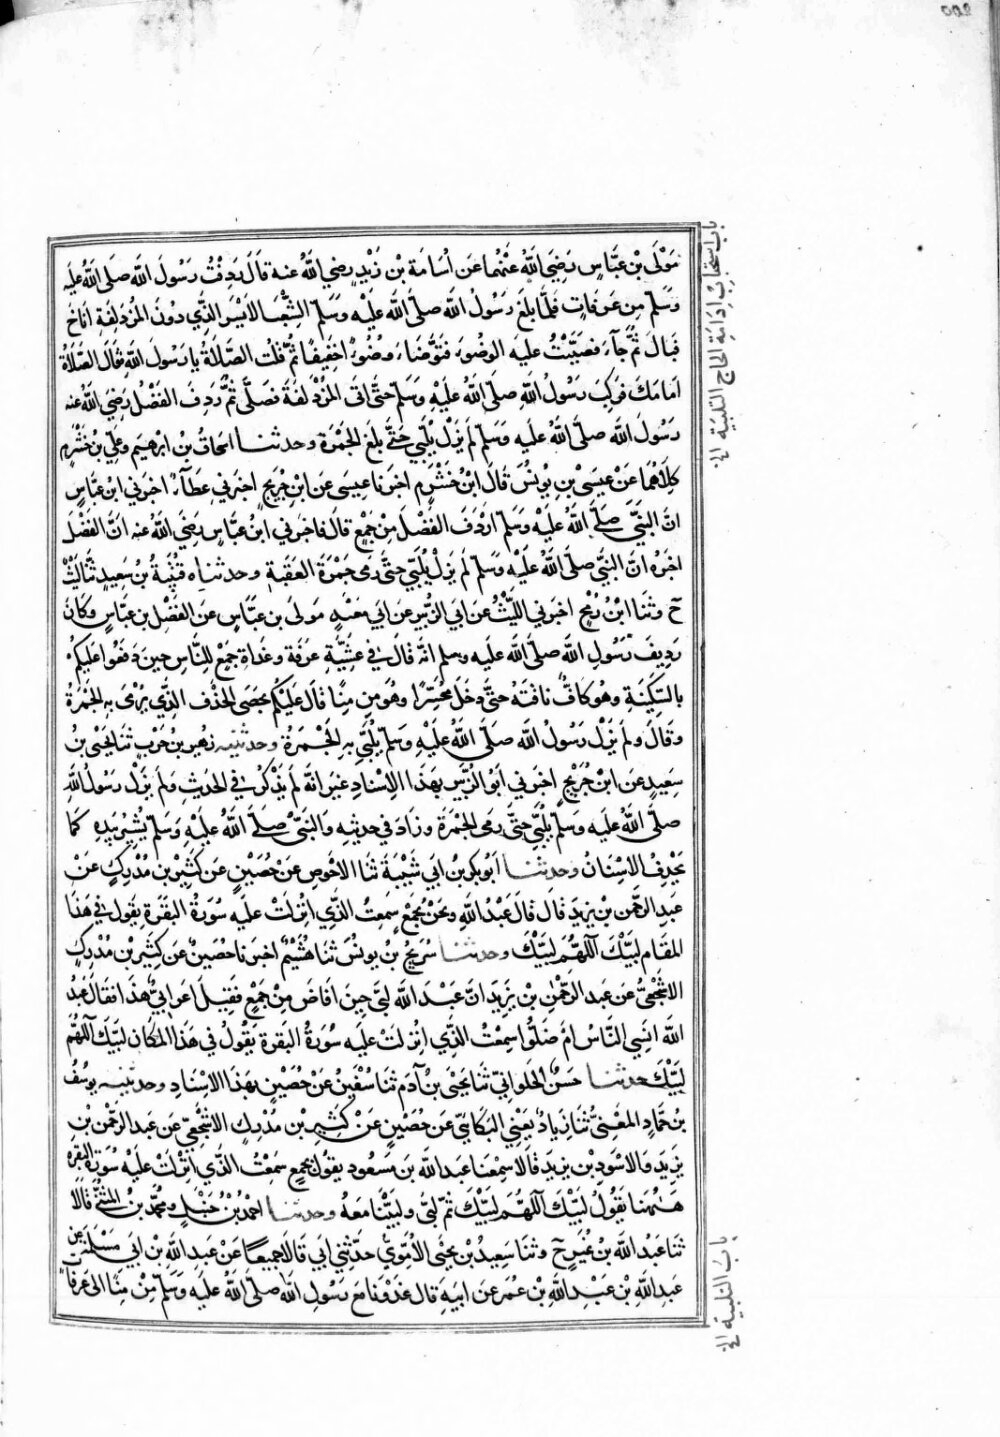 باب استحباب ادامة الحاج التلبية الخ
مَوْلَى بْن عَبَّاسٍ رَضِيَ اللَّهُ عَنْهُمَا عَن اُسَامَةَ بْن زَيْدٍ رضي اللَّهُ عنه قَالَ رَدِفْتُ رَسُولَ الله صلى اللَّهُ عليه
وَسَلم مِن عَرَفَاتٍ فلمَّا بَلغَ رَسُولُ اللَّه صلى اللَّه عليه وَسَلم الشِّعْبَ الاَيْسَرَ الذِّي دونَ المُزدَلِفَةِ انَاخَ
فَبَالَ ثُمَّ جَآءَ فَصَبَبْتُ عليه الوَضوءَ فَتَوَضَّاءَ وضُوءً اخَفِيفًا ثُمَّ قلتُ الصَّلاَةُ يا رَسُولَ اللَّهِ فقَالَ الصَّلاَةُ
امَامَكَ فَركِبَ رَسُولُ اللَّهِ صلى اللَّهُ عَلَيْهِ وَسَلم حَتَّى اتَى المُزْدَلفَةَ فصَلَّى ثُمَّ رَدِفَ الفَضْلُ رَضِيَ اللَّهُ عنه
رَسُولَ اللَّه صَلَّى اللَّهُ عليه وَسَلم لَم يَزَلْ يُلَبِّي حَتَّى بلغ الجَمْرَةَ وحدثنا اسحَاقُ بْنُ ابرهِيمَ وعَلِيُّ بْنُ خَشْرَمٍ
كِلاَهُمَا عَنْ عِيسَى بْنِ يُونُسَ قَالَ ابْنُ خَشْرَمٍ اخبَرنَا عِيسَى عن ابْنِ جُرَيْجٍ اخبَرني عَطَآءٌ اخبَرني ابْنُ عبَّاسٍ
انَّ النبيَّ صَلى اللَّهُ عَلَيْهِ وَسَلم ارْدَفَ الفَضْلَ مِنْ جَمْعٍ قالَ فاخبَرني ابْنُ عبَّاسٍ رَضِيَ اللَّهُ عنه انَّ الفَضْلَ
اخبَرَهُ انَّ النَّبيَّ صلى اللَّهُ عَلَيْهِ وَسَلم لَم يَزلْ يُلَبِّي حتَّى رَمَى جَمْرَةَ العَقَبَةِ وحدثناه قُتَيْبَةُ بْنُ سَعِيدٍ ثنَالَيْثٌ
ح وثَنَا ابْنُ رُمْحٍ اخبَرني اللَّيْثُ عَنْ ابِي الزُّبَيرِ عَن ابي مَعْبَدٍ مَوْلَى بن عَبَّاسٍ عَن الفَضْلِ بْنِ عبَّاسٍ وكَانَ
رَدِيفَ رَسُولِ اللَّه صلى اللَّه عليه وسلم انَّهُ قالَ في عَشِيَّةِ عَرَفَةَ وغَدَاةِ جَمْعٍ للنَّاسِ حِينَ دَفَعُوا عَليكُمْ
بالسَّكِينَةِ وهُو كَافٌّ نَاقَتَهُ حتَّى دَخَلَ مُحَسِّرًا وهُو مِن مِنًا قَالَ عَلَيْكُم بحَصَى الخذْفِ الذِّي يُرْمَى بهِ الجَمْرَةُ
وقَالَ ولَم يَزَلْ رَسُولُ اللَّه صَلَّى اللَّهُ عَلَيْهِ وَسَلم يُلَبِّي بهِ الجَمْرَةَ وحدثنيه زهَيرُ بْن حَرْبٍ ثنَا يَحْيَى بْنُ
سَعِيدٍ عن ابْنِ جُرَيْجٍ اخبَرني ابُو الزُّبَيرِ بهَذا الاِسْنَادِ غيرَ انَّهُ لَم يَذْكُرْ في الحَدِيثِ ولَم يَزَلْ رَسولُ اللَّهِ
صلى اللَّهُ عليه وَسَلم يُلَبِّي حتَّى رمَى الجَمْرَةَ وزَادَ في حديثِهِ وَالنَّبيُّ صلى اللَّهُ عَليْهِ وَسَلم يُشِيرُ بِيَدِهِ كَمَا
يَخذِفُ الاِنْسَانُ وحدثنا ابُو بكرِ بْنُ ابي شَيْبَةَ ثنَا الاَحْوصِ عَنْ حُصَيْنٍ عن كَثِيْرِ بْن مُدْرِكٍ عَنْ
عبدِ الرَّحمنِ بْنِ يَزيدَ قَالَ قَالَ عَبْدُ اللَّهِ ونحنُ بجَمْعٍ سَمِعتُ الذِّي انزِلَتْ عليه سُورَةُ البَقَرَةِ يَقولُ في هَذا
المَقَامِ لبَّيْكَ اللَّهُمَّ لبَّيْكَ وحدثنا سُرَيْجُ بْنُ يونُسَ ثنَا هُشَيْمٌ اخبَرنَا حُصَيْنٌ عن كَثِيرِ بْنِ مُدْرِكٍ
الاَشْجَعِيِّ عَن عَبدِ الرَّحْمٰن بْنِ يَزِيدَ انَّ عَبْدَ اللَّه لبَّى حِينَ افَاضَ مِنْ جَمْعٍ فَقِيلَ اعَرابيٌّ هَذَا فقَالَ عَبْدُ
اللَّه انَسِيَ النَّاسُ امْ ضَلُّوا سمِعْتُ الذِّي انزِلَتْ عليه سُورَةُ البَقرَةِ يَقُولُ في هَذَا المَكَانِ لبَّيْكَ اللَّهُمَّ
لبَّيْكَ حدثنا حَسَنٌ الحُلوَانيُّ ثنَا يحْيَى بْنُ آدَمَ ثنَا سُفْيٰنُ عَنْ حُصَيْنٍ بهَذَا الاِسْنَادِ وحدثنيه يُوسُفُ
بْنُ حَمَّادٍ المَعْنِيُّ ثنَا زِيَادٌ يَعْنِي البَكَّائِيَّ عَن حُصَيْنٍ عَنْ كَثِيرِ بْن مُدْركٍ الاَشْجَعِيِّ عَن عبدِ الرَّحْمٰنِ بْنِ
يَزِيدَ وَالاَسْوَدِ بْنِ يزيدَ قَالاَ سمعْنَا عَبدَ اللَّهِ بنَ مَسْعودٍ يقُولُ بجَمْعٍ سَمِعْتُ الذِّي انزِلَتْ عليْهِ سُورَةُ البَقَرةِ
هَاهُنَا يَقُولُ لبَّيْكَ اللَّهُمَّ لبَّيْكَ ثُمَّ لبَّى ولبَّيْنَا مَعَهُ وحدثنا احْمدُ بْنُ حَنْبَلٍ ومُحمَّدُ بْنُ المُثَنَّى قَالاَ
ثنَا عَبْدُ اللَّهِ بْنُ نُمَيرٍ ح وثنَا سَعِيدُ بْنُ يحْيَى الاُمَوِيُّ حدَّثَنِي ابي قَالاَ جَمِيعًا عَنْ عبدِ اللَّهِ بْنِ ابي سَلمَةَ عن
عَبدِ اللَّهِ بْنِ عَبْدِ اللَّهِ بْنِ عُمَرَ عَن ابِيهِ قالَ غدَوْنَا مَعَ رَسُولِ اللَّه صَلى اللَّهُ عليه وَسَلم مِنْ مِنًا الَى عَرفَاتٍ
باب التلبية الخ